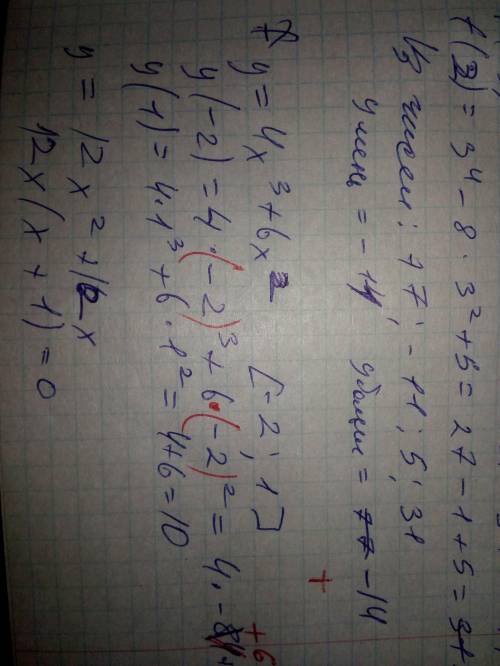 f(3) = 3⁴ - 8 · 3² + 5 = 27 - 1 + 5 = 31
Из чисел: 17; -11; 5; 31
y = 4x³ + 6x² [-2; 1]
y(-2) = 4 · (-2)³ + 6 · (-2)² = 4 · -8
+6
y(1) = 4 · 1³ + 6 · 1² = 4 + 6 = 10
y = 12x² + 12x
12x(x + 1) = 0